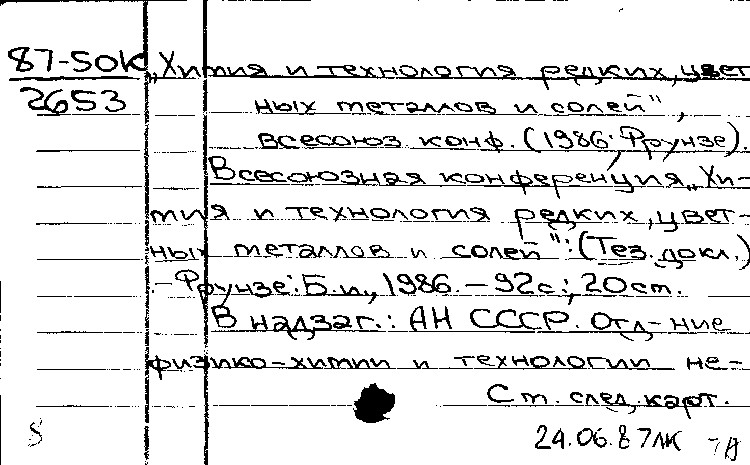 87-5ОК „Химия и технология редких, цвет
2653 ных металлов и солей",
всесоюз конф. (1986; Фрунзе).
Всесоюзная конференция „Хи-
мия и технология редких, цвет-
ных металлов и солей": (Тез. докл.)
.-Фрунзе: Б.и., 1986. – 92с.; 20ст.
В надзаг.: АН СССР. Отд-ние
физико-химии и технологии не-
Ст. след. карт.
24.06.87ЛК